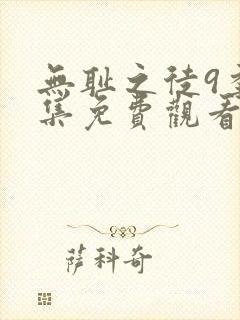 無耻之徒9
集免費觀看
萨科奇